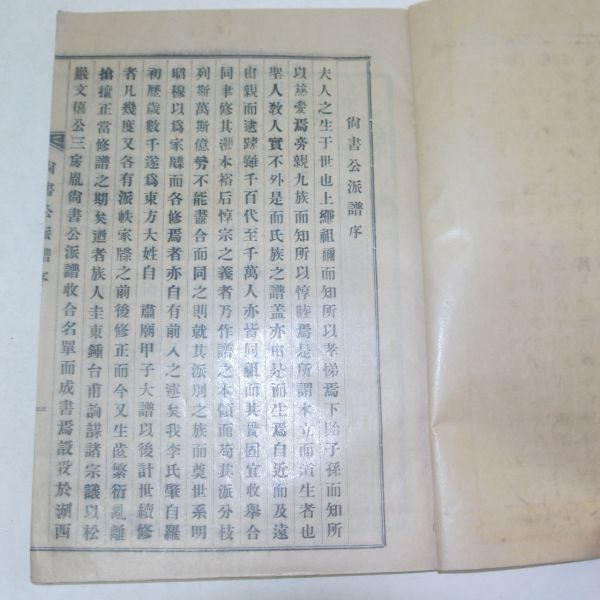 尙書公派譜序
夫人之生于世也上繩祖禰而知所以孝悌焉下貽子孫而知所
以慈愛焉旁親九族而知所以惇睦焉是所謂本立而道生者也
聖人敎人實不外是而氏族之譜盖亦由是而生焉自近而及遠
由親而逮踈雖千百代至千萬人亦皆同祖而其貫固宜收擧合
同聿修其遡本裕后惇宗之義者乃作譜之本領而苟其派分枝
列斯萬斯億勢不能盡合而同之則就其派別之族而奠世系明
昭穆以爲家牒而各修焉者亦自有前人之述矣我李氏肇自羅
初歷歲數千遂爲東方大姓自 肅廟甲子大譜以後計世續修
者凡幾度又各有派帙家牒之前後修正而今又生齒繁衍亂離
搶攘正當修譜之期矣迺者族人圭東鍾台甫詢謀諸宗議以松
巖文僖公三房胤尙書公派譜收合名單而成書焉設役於湖西
尙書公派譜序
一